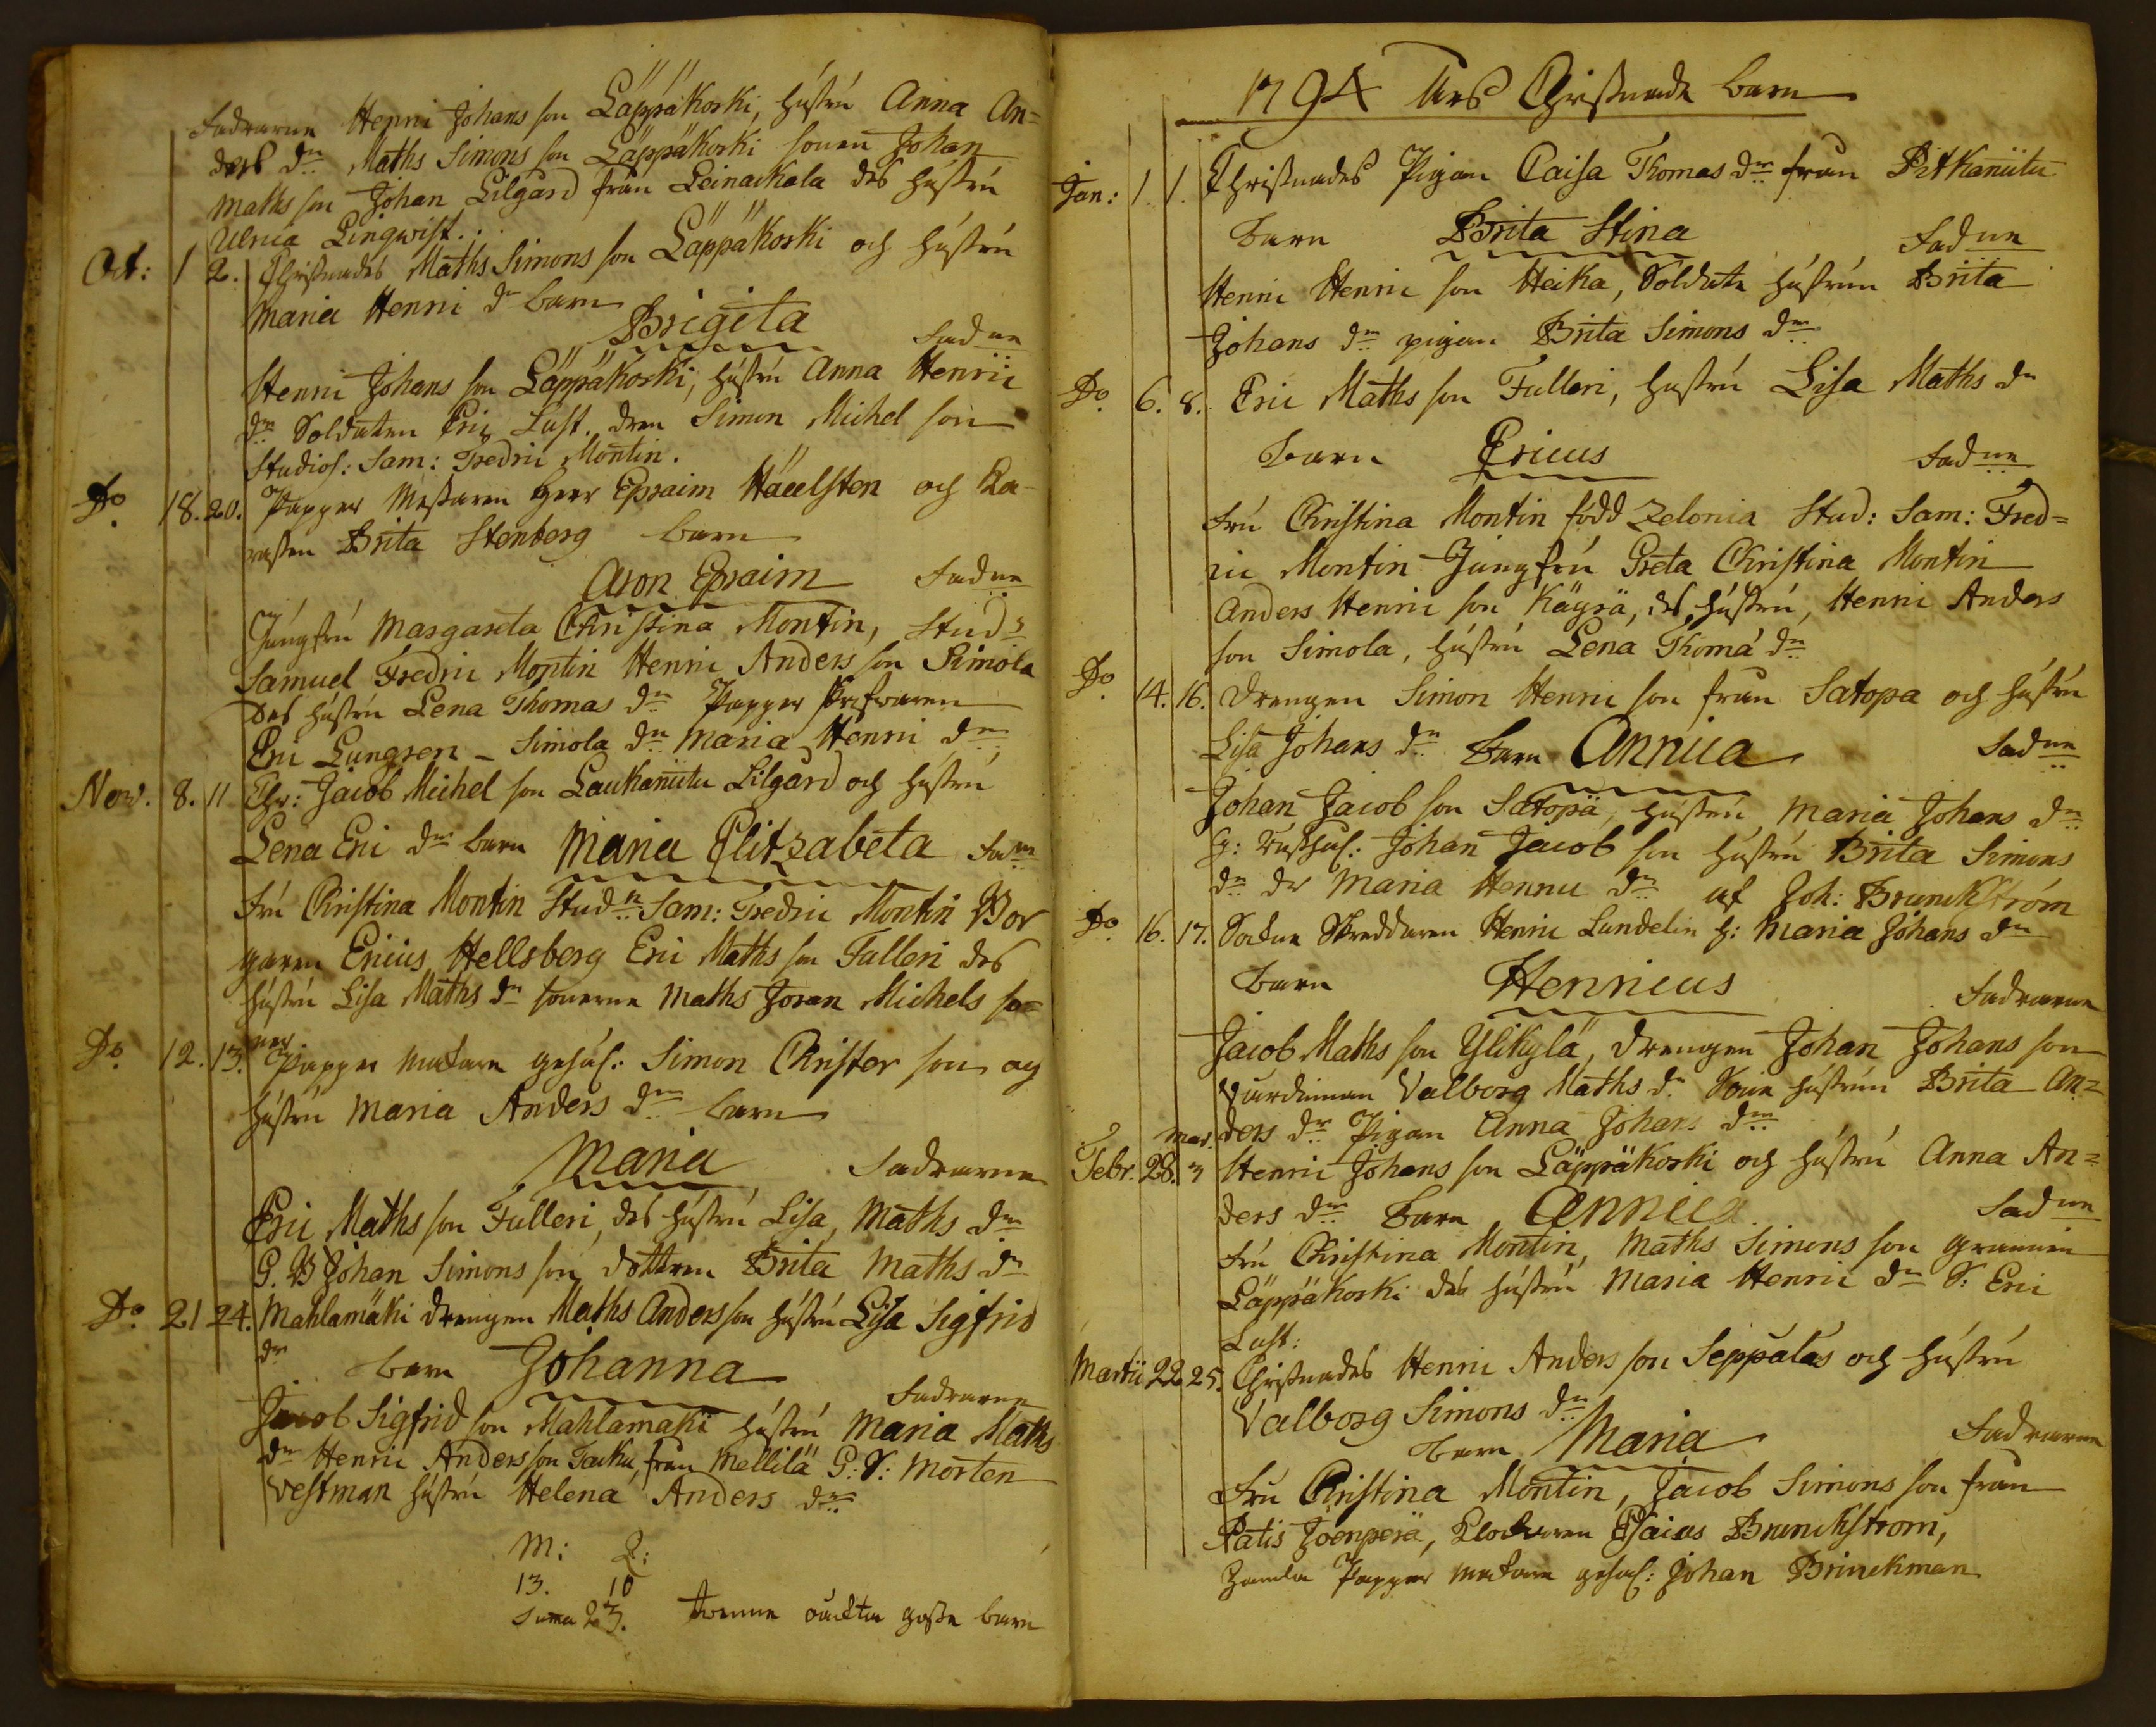 Fadrarne Henric Johans son Läppäkoski, hustru Anna An=
ders dr Maths Simons son Läppäkoski sonen Johan
Maths son Johan Lilgard från Leinackala des hustru
Ulrica Lingwist.
Oct: 1 2. Christnades Maths Simons son Läppäkoski och hustru
Maria Henric dr barn
Brigita Fadne
Henric Johans son Läppäkoski, hustru Anna Henric
dr Soldaten Eric Lust. dren Simon Michel son
Studios: Sam: Fredric Montin.
Do 18. 20. Papper Mestaren Herr Epraim Häcelsten och Kä-
rasten Brita Stenberg barn
Aron Epraim Fadne
Jungfru Margareta Christina Montin, Stud:
Samuel Fredric Montin Henric Anders son Simola
Des hustru Lena Thomas dr Papper
Eric Lungren - Simola dr Maria Henric dr
Nov. 8. 11 Chr: Jacob Michel son Laukanïitu Lilgård och hustru
Lena Eric dr barn Maria Elitzabeta Fadne
Fru Christina Montin Studn Sam: Fredric Montin Bor
garen Ericus Hellsberg Eric Maths son Falleri des
hustru Lisa Maths dr sönerne Maths Joran Michels sö=
ner
Do 12. 13. Papper makare gesäl: Simon Christer son og
hustru Maria Anders dr barn
Maria Fadrarne
Eric Maths son Fulleri, des hustru Lisa Maths dr
G. B Johan Simons son dottren Brita Maths dr
Do 21 24. Mahlamäki drengen Maths Anders son hustru Lisa Sigfrid
dr barn Johanna
Fadrarne
Jacob Sigfrid son Mahlamaki hustru Maria Maths
dr Henric Anders son Taaku från Mellilä G: S: Morten
Vestman hustru Helena Anders dr
M: Q:
13. 10
Suma 23. Tvenne oäckta gosse barn
1794 Års Christnade barn
Jan: 1. 1. Christnades Pigan Caisa Thomas dr från Pitkaniitu
Barn Brita Stina Fadne
Henric Henric son Heika, Soldate hustrun Brita
Johans dr pigan Brita Simons dr
Do 6. 8. Eric Maths son Fulleri, hustru Lisa Maths dr
Barn Ericus Fadne
Fru Christina Montin född Zelonia Stud: Sam: Fred=
ric Montin Jungfru Greta Christina Montin
Anders Henric son Kägrä, des hustru, Henric Anders
son Simola, hustru Lena Thoma dr
Do 14. 16. Drengen Simon Henric son från Satopa och hustru
Lisa Johans dr Barn Annica Fadne
Johan Jacob son Satopä, hustru Maria Johans dr
Johan Jacob son hustru Brita Simons
dr dr Maria Henric dr af Joh: Brunckström
Do 16. 17. Sockne Skreddaren Henric Lundelin h: Maria Johans dr
Barn Henricus Fadrarne
Jacob Maths son Ylikylä, drengen Johan Johans son
Valborg Maths dr hustrun Brita An=
ders dr Pigan Anna Johans dr
Mar.
Febr. 28. 3 Henric Johans son Läppäkoski och hustru Anna An=
ders dr Barn Annica Fadne
Fru Christina Montin, Maths Simons son grannen
Läppäkoski des hustru Maria Henric dr S: Eric
Lust:
Martii 22 25. Christnades Henric Anders son Seppälas och hustru
Valborg Simons dr
barn Maria Fadrarne
Fru Christina Montin, Jacob Simons son från
Patis Joenperä, Klockaren Esaias Brunckstrom,
Gamla Papper makare gesäl: Johan Brinckman